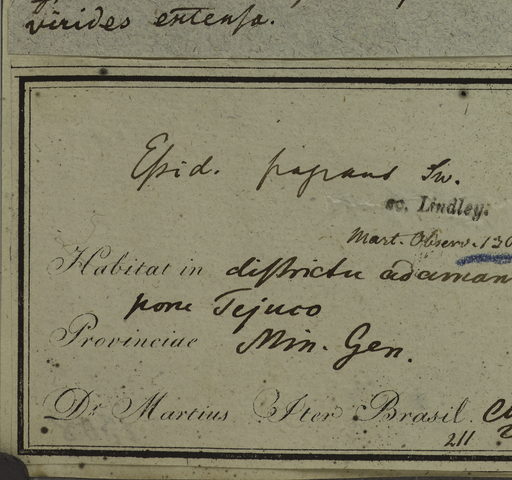 virides extensa.
Epid. fragrans Sw.
sc. Lindley.
Mart. Observ. 130
Habitat in districtu adaman
pone Tejuco
Provinciae Min. Gen.
Dr Martius Iter Brasil.
211